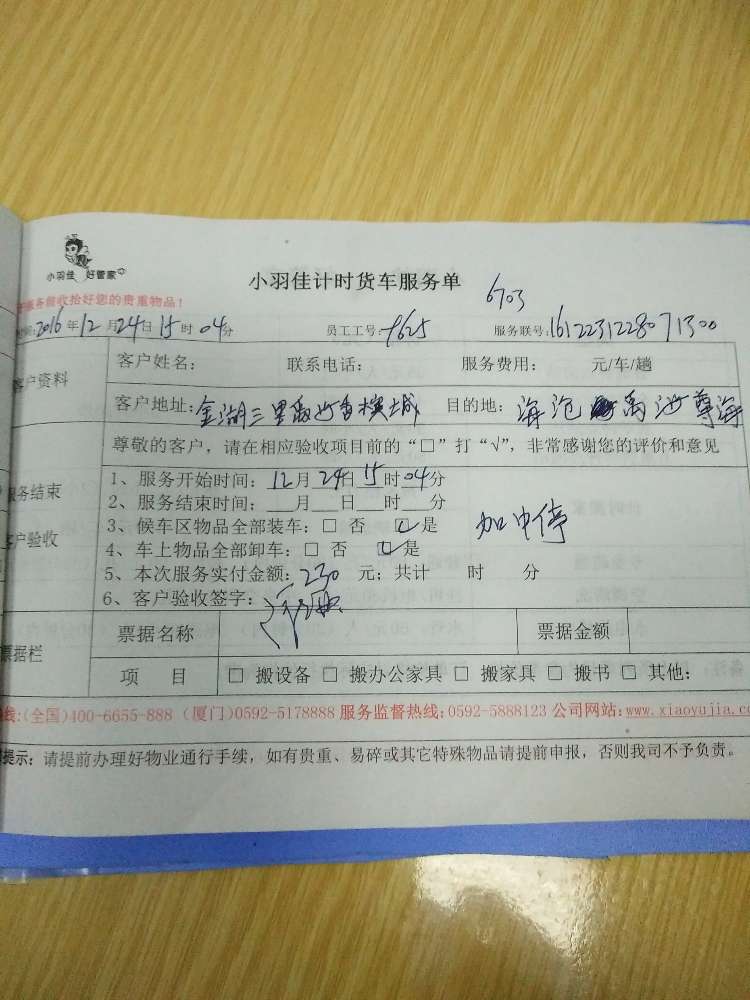 小羽佳 好管家
小羽佳计时货车服务单
6703
服务前收拾好您的贵重物品！
2016年12月24日15时04分 员工工号：9625 服务联号：1612231228071300
客户资料
客户姓名： 联系电话： 服务费用： 元/车/趟
客户地址：金湖三里 香槟城 目的地：海沧 禹洲尊海
尊敬的客户，请在相应验收项目前的“□”打“√”，非常感谢您的评价和意见
服务结束
客户验收
1、服务开始时间：12月24日15时04分
2、服务结束时间：___月___日___时___分
3、候车区物品全部装车：□ 否 ☑是
加中停
4、车上物品全部卸车：□ 否 ☑是
5、本次服务实付金额：230 元；共计 时 分
6、客户验收签字：
票据栏
票据名称 票据金额
项 目 □ 搬设备 □ 搬办公家具 □ 搬家具 □ 搬书 □ 其他：
线:(全国)400-6655-888 (厦门)0592-5178888 服务监督热线:0592-5888123 公司网站:www.xiaoyujia.co
提示：请提前办理好物业通行手续，如有贵重、易碎或其它特殊物品请提前申报，否则我司不予负责。